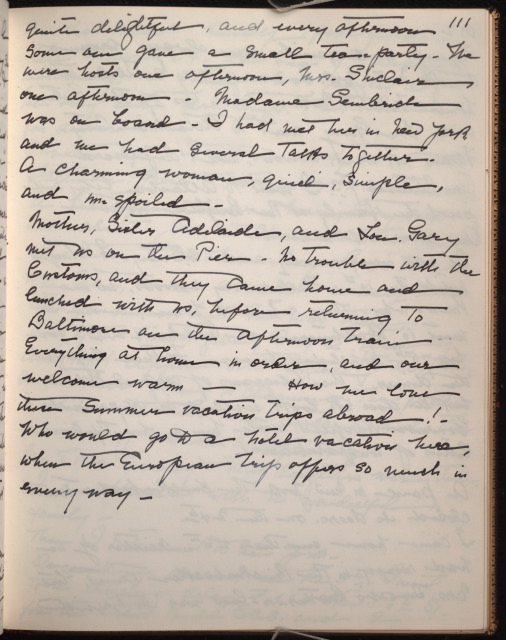 111
quite delightful, and every afternoon
some one gave a small tea-party - We
were hosts one afternoon, Mrs. Sinclair
one afternoon - Madame Sembrich
was on board - I had met her in New York
and we had several talks together.
A charming woman, quiet, simple,
and un-spoiled -
Mother, Sister Adelaide, and Lou. Gary
met us on the Pier - No trouble with the
Customs, and they came home and
lunched with us, before returning to
Baltimore on the afternoon train
Everything at home in order, and our
welcome warm — How we love
these Summer vacation trips abroad! -
Who would go to a hotel vacation here,
when the European trip offers so much in
every way -